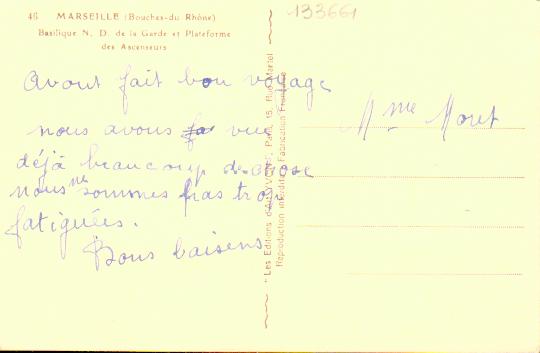 46 MARSEILLE (Bouches-du Rhône)
Basilique N. D. de la Garde et Plateforme
des Ascenseurs
133661
avont fait bon voyage
nous avons vue
déjà beaucoup de chose
nous ne sommes pas trop
fatiguées.
Bons baisens
Mme Moret
Les Editions d'Art YVON, Paris, 15, Rue Martel
Reproduction interdite Fabrication Française